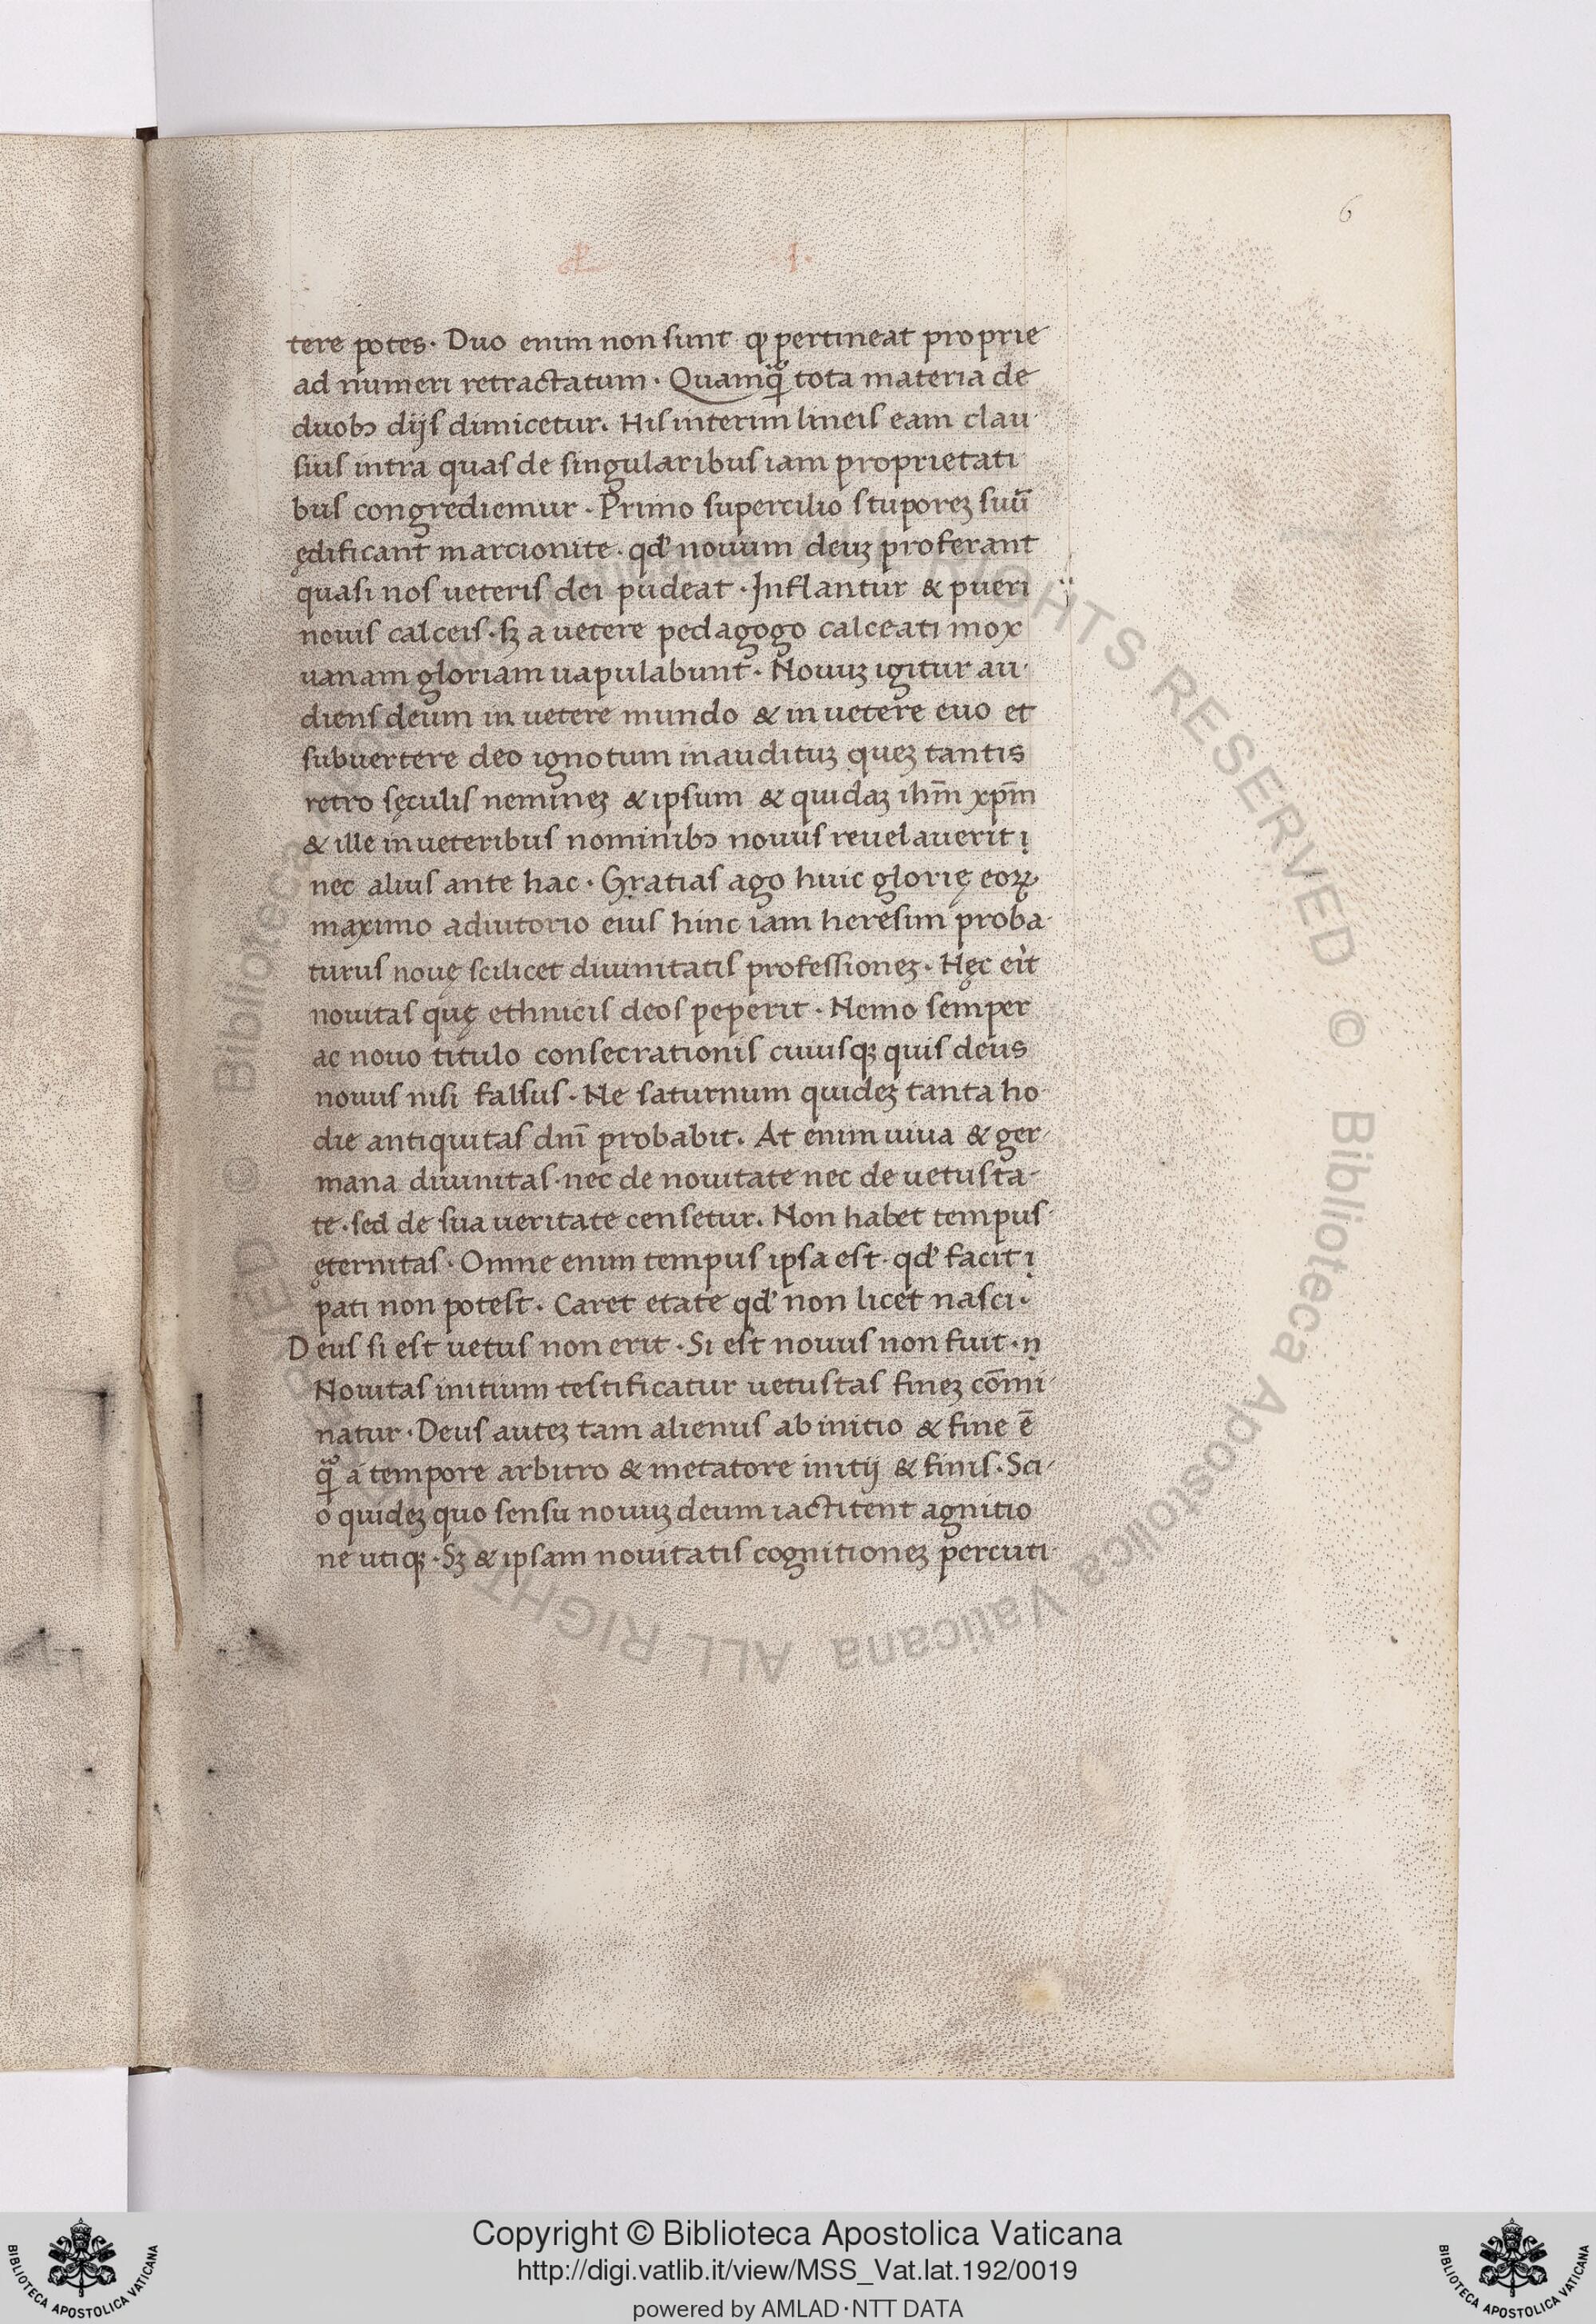 6
·I·
tere potes· Duo enim non sunt ꝙ pertineat proprie
ad numeri retractatum· Quamꝙ̃ tota materia de
duobꝫ dijs dimicetur. His interim lineis eam clau
sius intra quas de singularibus iam proprietati
bus congrediemur· Primo supercilio stuporeꝫ suū
ędificant marcionite· qd' nouum deuꝫ proferant
quasi nos ueteris dei pudeat· Inflantur & pueri
nouis calceis· sꝫ a uetere pedagogo calceati mox
uanam gloriam uapulabunt· Nouuꝫ igitur au
diens deum in uetere mundo & in uetere euo et
subuertere deo ignotum inaudituꝫ queꝫ tantis
retro sęculis nemineꝫ & ipsum & quidaꝫ ihm̄ xp̄m
& ille in ueteribus nominibꝫ nouus reuelauerit ı
nec alius ante hac· Gratias ago huic glorię eoꝝ
maximo adiutorio eius hinc iam heresim proba
turus nouę scilicet diuinitatis professioneꝫ· Hęc erit
nouitas quę ethnicis deos peperit· Nemo semper
ac nouo titulo consecrationis cuiusqꝫ quis deus
nouus nisi falsus· Ne saturnum quideꝫ tanta ho
die antiquitas dnī probabit. At enim uiua & ger
mana diuinitas· nec de nouitate nec de uetusta-
te· sed de sua ueritate censetur. Non habet tempus
ęternitas· Omne enim tempus ipsa est· qd' facit ı
pati non potest· Caret etate qd' non licet nasci·
Deus si est uetus non erit· Si est nouus non fuit· n
Nouitas initium testificatur uetustas fineꝫ cōmi
natur· Deus auteꝫ tam alienus ab initio & fine ē
ꝙ̃ a tempore arbitro & metatore initij & finis· Sci-
o quideꝫ quo sensu nouuꝫ deum iactitent agnitio
ne utiqꝫ· Sꝫ & ipsam nouitatis cognitioneꝫ percuti
© Biblioteca Apostolica Vaticana ALL RIGHTS RESERVED © Biblioteca Apostolica Vaticana ALL RIGHT
Copyright © Biblioteca Apostolica Vaticana
http://digi.vatlib.it/view/MSS_Vat.lat.192/0019
powered by AMLAD·NTT DATA
BIBLIOTECA APOSTOLICA VATICANA
BIBLIOTECA APOSTOLICA VATICANA